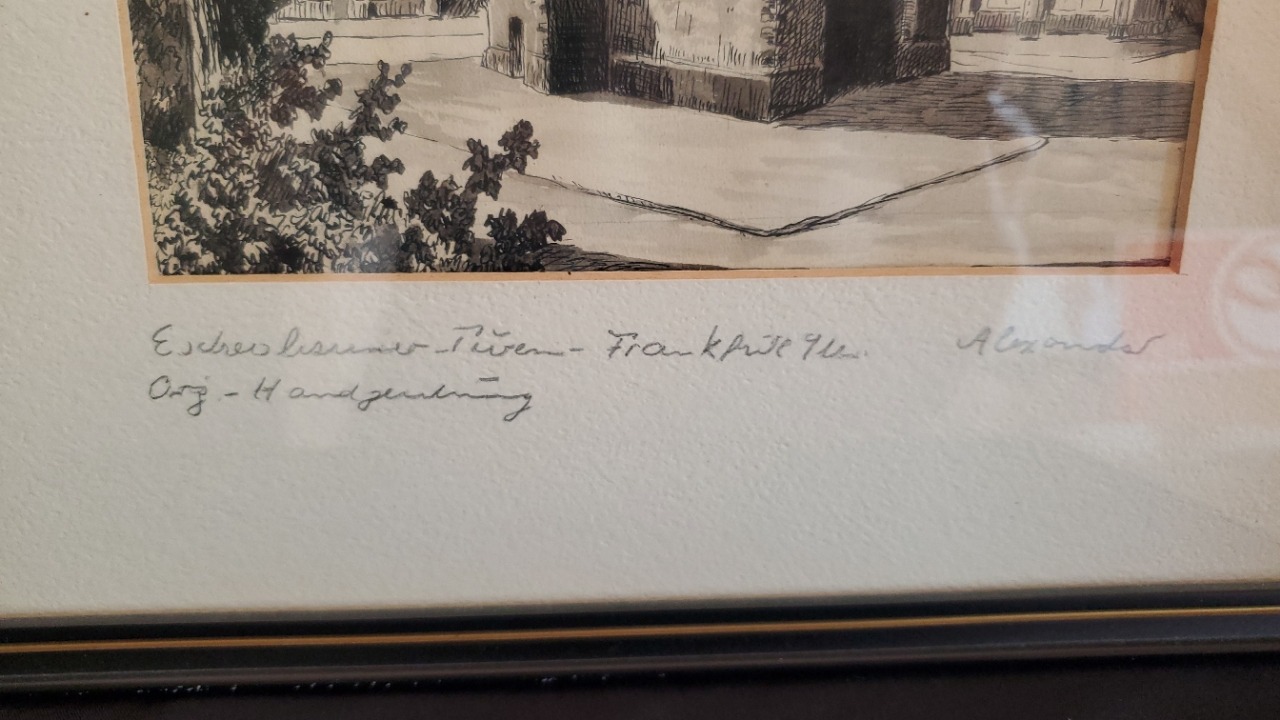 Eschersheimer-Turm - Frankfurt a/M. Alexander
Orig - Handzeichnung